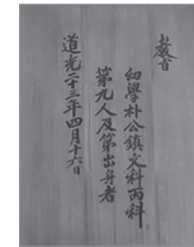 教旨
幼學朴公鎮文科丙科
第九人及第出身者
道光二十三年四月十六日